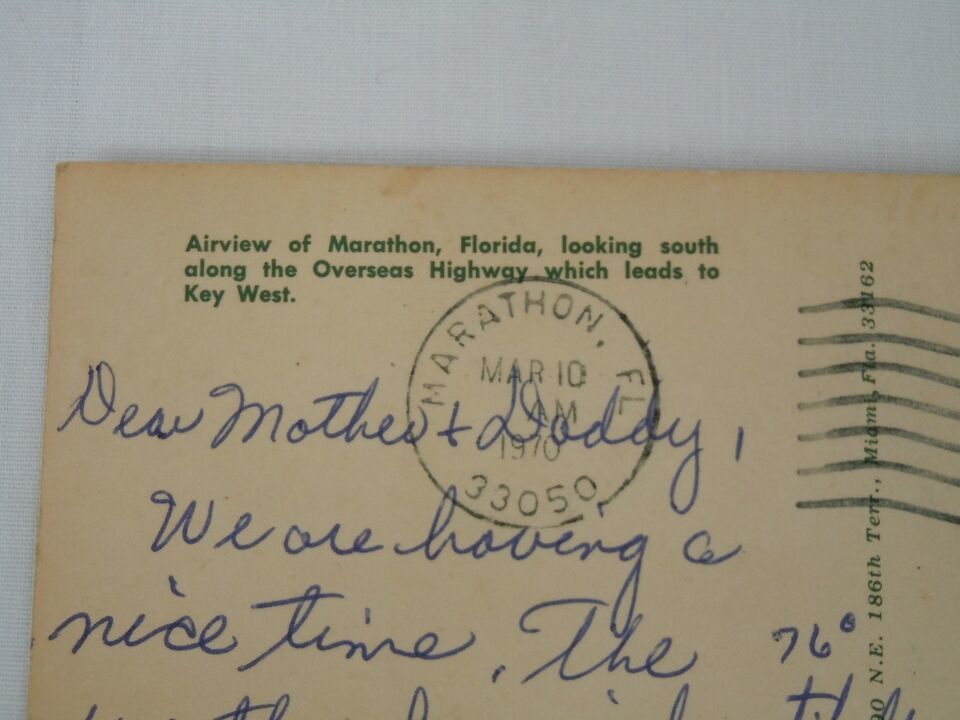 Airview of Marathon, Florida, looking south
along the Overseas Highway which leads to
Key West.
MARATHON, FL
MAR 10
AM
1970
33050
Dear Mother & Daddy,
We are having a
nice time. The 76°
00 N.E. 186th Terr., Miami, Fla. 33162